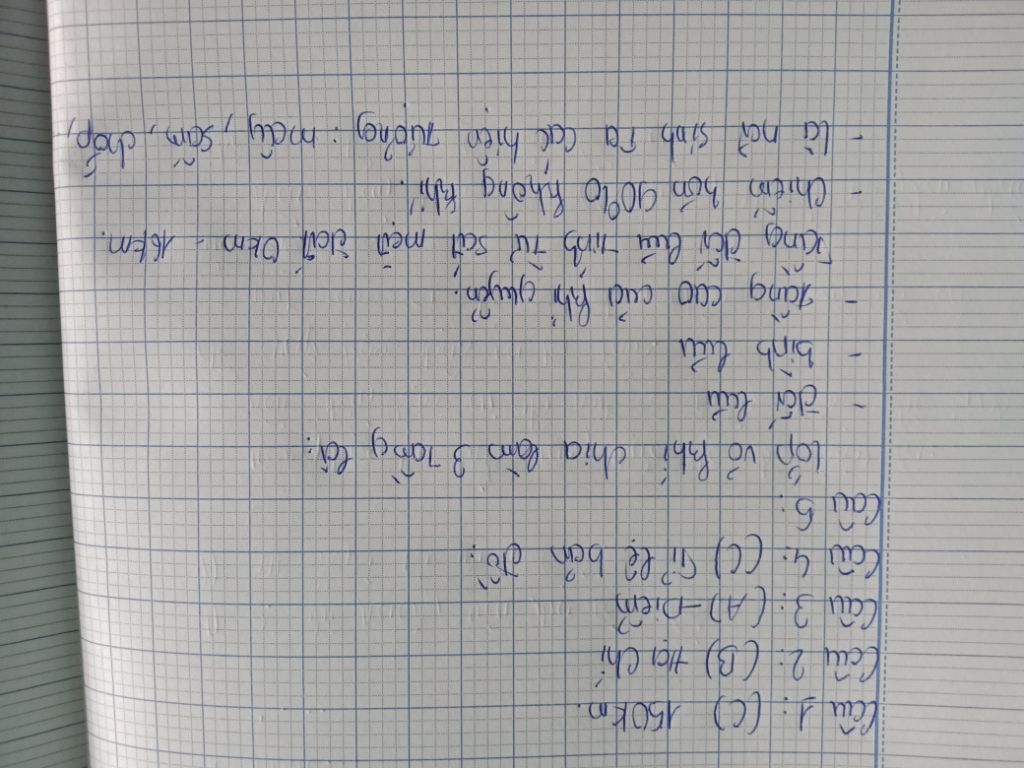 Câu 1: (C) 150km.
Câu 2: (B) Hạ Chí
Câu 3: (A) Điểm
Câu 4: (C) Tỉ lệ bản đồ.
Câu 5:
Lớp vỏ khí chia làm 3 tầng là:
- đối lưu
- bình lưu
- tầng cao của khí quyển.
Tầng đối lưu tính từ sát mặt đất 0km - 16km.
- Chiếm hơn 90% không khí.
- Là nơi sinh ra các hiện tượng: mây, sấm, chớp,